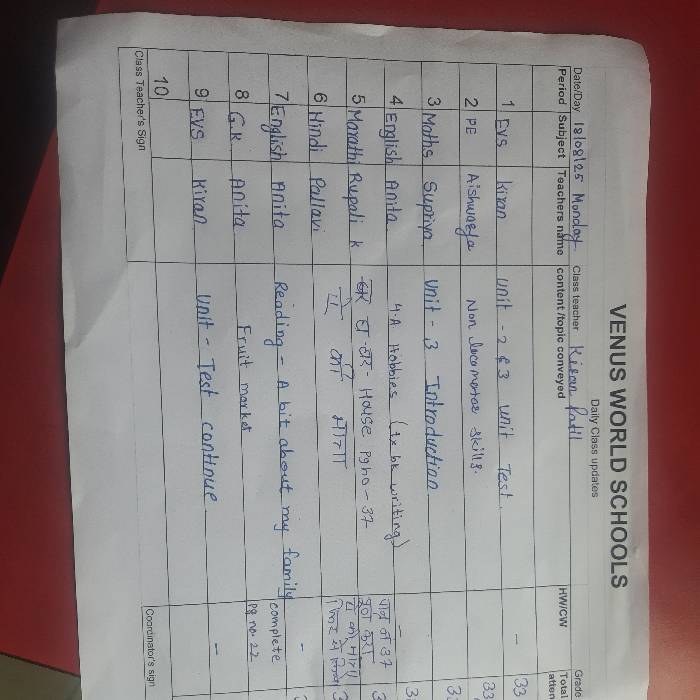 VENUS WORLD SCHOOLS
Daily Class updates
Date/Day 18/08/25 Monday Class teacher Kiran Patil Grade
Period Subject Teachers name content /topic conveyed HW/CW Total
1 EVS Kiran Unit - 2 & 3 Unit Test. - 33
2 PE Aishwarya Non locomotor skills. 33
3 Maths Supriya Unit - 3 Introduction
4 English Anita 4.A Hobbies (tx bk writing) -
5 Marathi Rupali K House pg no - 37
6 Hindi Pallavi की मात्रा
7 English Anita Reading - A bit about my family -
8 G.K Anita Fruit market complete pg no. 22
9 EVS Kiran Unit - Test continue -
10
Class Teacher's Sign Coordinator's sign